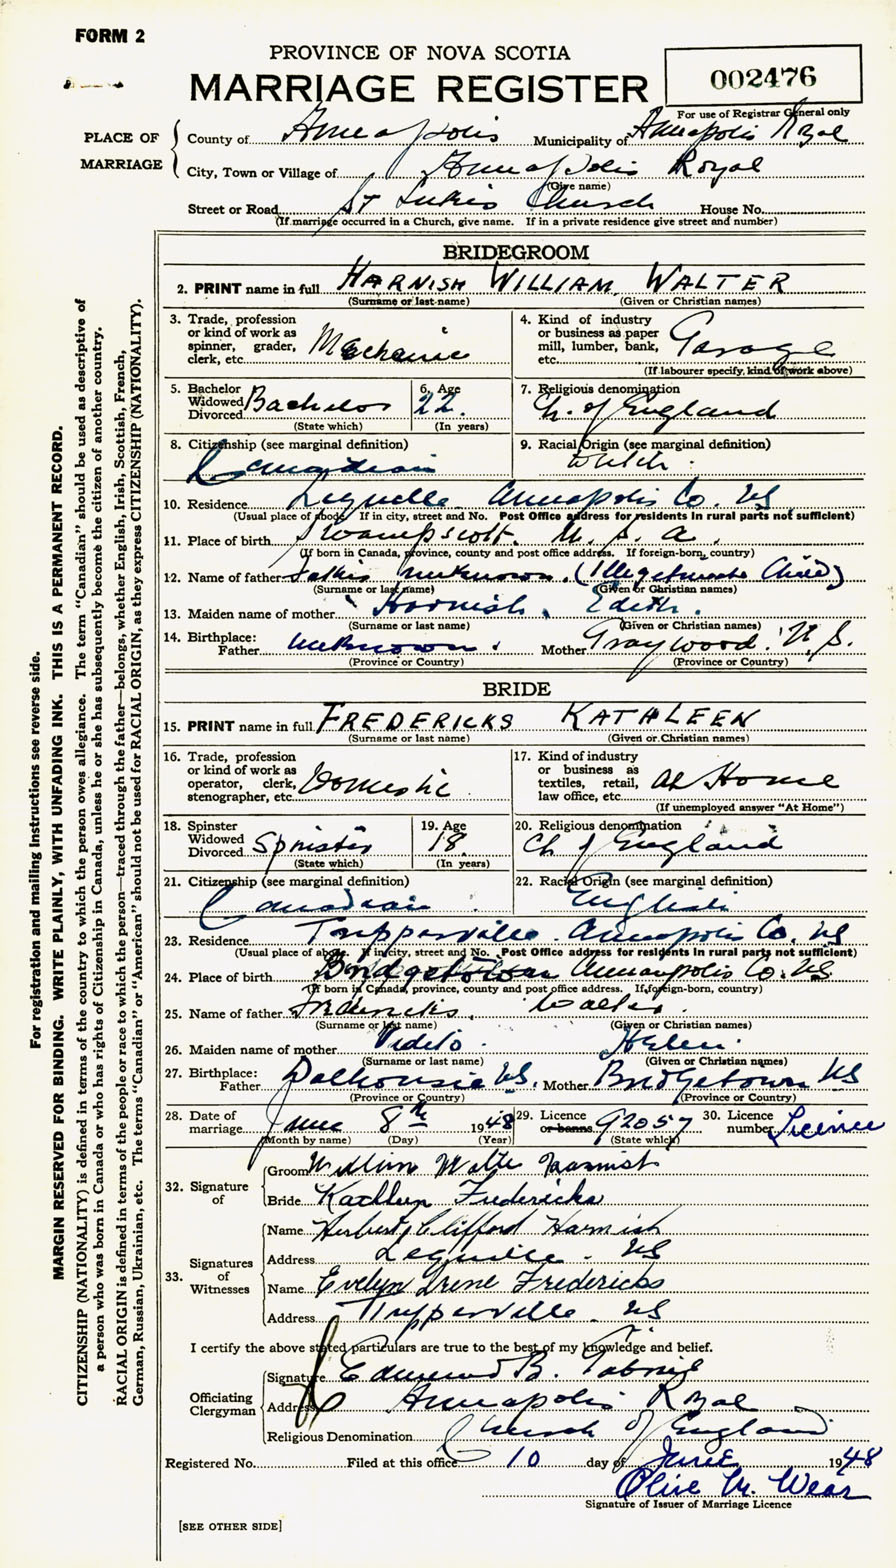 FORM 2
PROVINCE OF NOVA SCOTIA
MARRIAGE REGISTER
002476
For use of Registrar General only
PLACE OF MARRIAGE
County of Annapolis Municipality of Annapolis Royal
City, Town or Village of Annapolis Royal
(Give name)
Street or Road St Lukes Church House No.
(If marriage occurred in a Church, give name. If in a private residence give street and number)
BRIDEGROOM
2. PRINT name in full HARNISH WILLIAM WALTER
(Surname or last name) (Given or Christian names)
3. Trade, profession or kind of work as spinner, grader, clerk, etc. Mechanic
4. Kind of industry or business as paper mill, lumber, bank, etc. Garage
(If labourer specify, kind of work above)
5. Bachelor Widowed Divorced Bachelor
(State which)
6. Age 22
(In years)
7. Religious denomination Ch. of England
8. Citizenship (see marginal definition) Canadian
9. Racial Origin (see marginal definition) Dutch
10. Residence Lequille Annapolis Co. NS
(Usual place of abode. If in city, street and No. Post Office address for residents in rural parts not sufficient)
11. Place of birth Swampscott. U. S. A.
(If born in Canada, province, county and post office address. If foreign-born, country)
12. Name of father unknown. (Illegitimate Child)
(Surname or last name) (Given or Christian names)
13. Maiden name of mother Harnish, Edith.
(Surname or last name) (Given or Christian names)
14. Birthplace: Father unknown. Mother Graywood. N. S.
(Province or Country) (Province or Country)
BRIDE
15. PRINT name in full FREDERICKS KATHLEEN
(Surname or last name) (Given or Christian names)
16. Trade, profession or kind of work as operator, clerk, stenographer, etc. Domestic
17. Kind of industry or business as textiles, retail, law office, etc. At Home
(If unemployed answer "At Home")
18. Spinster Widowed Divorced Spinster
(State which)
19. Age 18
(In years)
20. Religious denomination Ch of England
21. Citizenship (see marginal definition) Canadian
22. Racial Origin (see marginal definition) English
23. Residence Tupperville Annapolis Co. NS
(Usual place of abode. If in city, street and No. Post Office address for residents in rural parts not sufficient)
24. Place of birth Bridgetown Annapolis Co. NS
(If born in Canada, province, county and post office address. If foreign-born, country)
25. Name of father Fredericks, Walter.
(Surname or last name) (Given or Christian names)
26. Maiden name of mother Videto. Helen.
(Surname or last name) (Given or Christian names)
27. Birthplace: Father Dalhousie NS. Mother Bridgetown NS
(Province or Country) (Province or Country)
28. Date of marriage June 8th 1948
(Month by name) (Day) (Year)
29. Licence or banns 92057
(State which)
30. Licence number Licence
32. Signature of
Groom William Walter Harnish
Bride Kathleen Fredericks
33. Signatures of Witnesses
Name Herbert Clifford Harnish
Address Lequille. NS
Name Evelyn Irene Fredericks
Address Tupperville. NS
I certify the above stated particulars are true to the best of my knowledge and belief.
Officiating Clergyman
Signature Edmund B.
Address Annapolis Royal
Religious Denomination Church of England
Registered No. Filed at this office 10 day of June 1948
Olive M. Wear
Signature of Issuer of Marriage Licence
[SEE OTHER SIDE]
For registration and mailing instructions see reverse side.
MARGIN RESERVED FOR BINDING. WRITE PLAINLY, WITH UNFADING INK. THIS IS A PERMANENT RECORD.
CITIZENSHIP (NATIONALITY) is defined in terms of the country to which the person owes allegiance. The term "Canadian" should be used as descriptive of
a person who was born in Canada or who has rights of Citizenship in Canada, unless he or she has subsequently become the citizen of another country.
RACIAL ORIGIN is defined in terms of the people or race to which the person—traced through the father—belongs, whether English, Irish, Scottish, French,
German, Russian, Ukrainian, etc. The terms "Canadian" or "American" should not be used for RACIAL ORIGIN, as they express CITIZENSHIP (NATIONALITY).